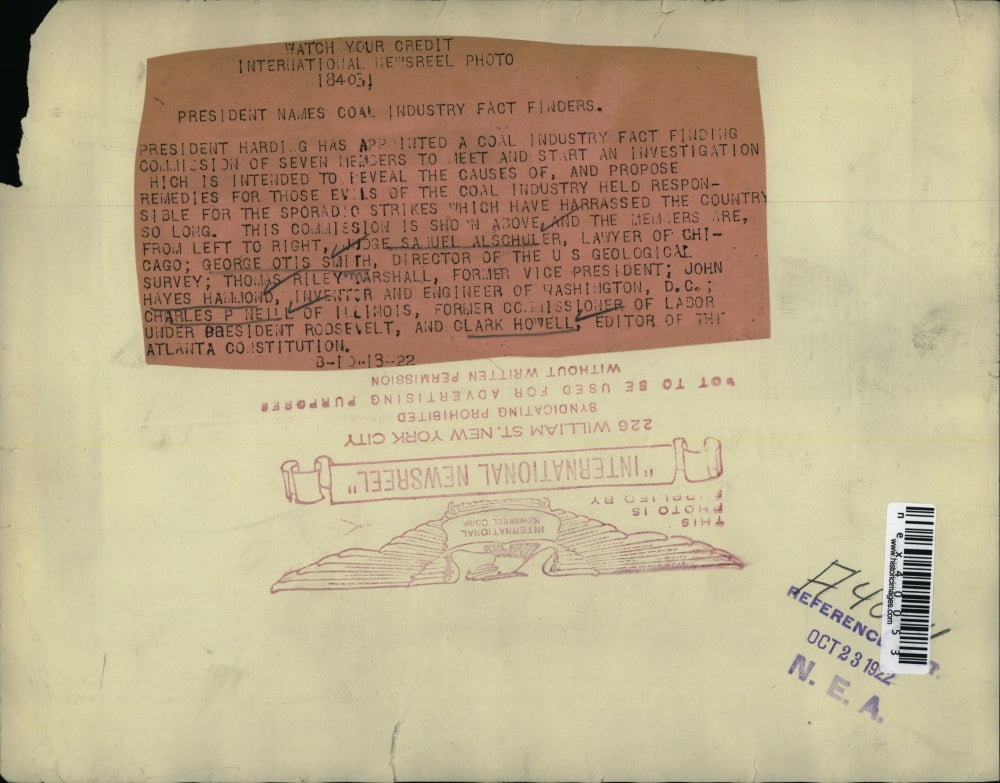 WATCH YOUR CREDIT
INTERNATIONAL NEWSREEL PHOTO
[84051]
PRESIDENT NAMES COAL INDUSTRY FACT FINDERS.
PRESIDENT HARDING HAS APPOINTED A COAL INDUSTRY FACT FINDING
COMMISSION OF SEVEN MEMBERS TO MEET AND START AN INVESTIGATION
HICH IS INTENDED TO REVEAL THE CAUSES OF, AND PROPOSE
REMEDIES FOR THOSE EVILS OF THE COAL INDUSTRY HELD RESPON-
SIBLE FOR THE SPORADIC STRIKES WHICH HAVE HARRASSED THE COUNTRY
SO LONG. THIS COMMISSION IS SHOWN ABOVE AND THE MEMBERS ARE,
FROM LEFT TO RIGHT, JUDGE SAMUEL ALSCHULER, LAWYER OF CHI-
CAGO; GEORGE OTIS SMITH, DIRECTOR OF THE U S GEOLOGICAL
SURVEY; THOMAS RILEY MARSHALL, FORMER VICE PRESIDENT; JOHN
HAYES HAMMOND, INVENTOR AND ENGINEER OF WASHINGTON, D.C.;
CHARLES P NEILL OF ILLINOIS, FORMER COMMISSIONER OF LABOR
UNDER PRESIDENT ROOSEVELT, AND CLARK HOWELL, EDITOR OF THE
ATLANTA CONSTITUTION.
THIS
PHOTO IS
SUPPLIED BY
INTERNATIONAL
NEWSREEL CORP.
"INTERNATIONAL NEWSREEL"
226 WILLIAM ST. NEW YORK CITY
SYNDICATING PROHIBITED
NOT TO BE USED FOR ADVERTISING PURPOSES
WITHOUT WRITTEN PERMISSION
nex40053
www.historicimages.com
REFERENCE
OCT 23 1922
N. E. A.